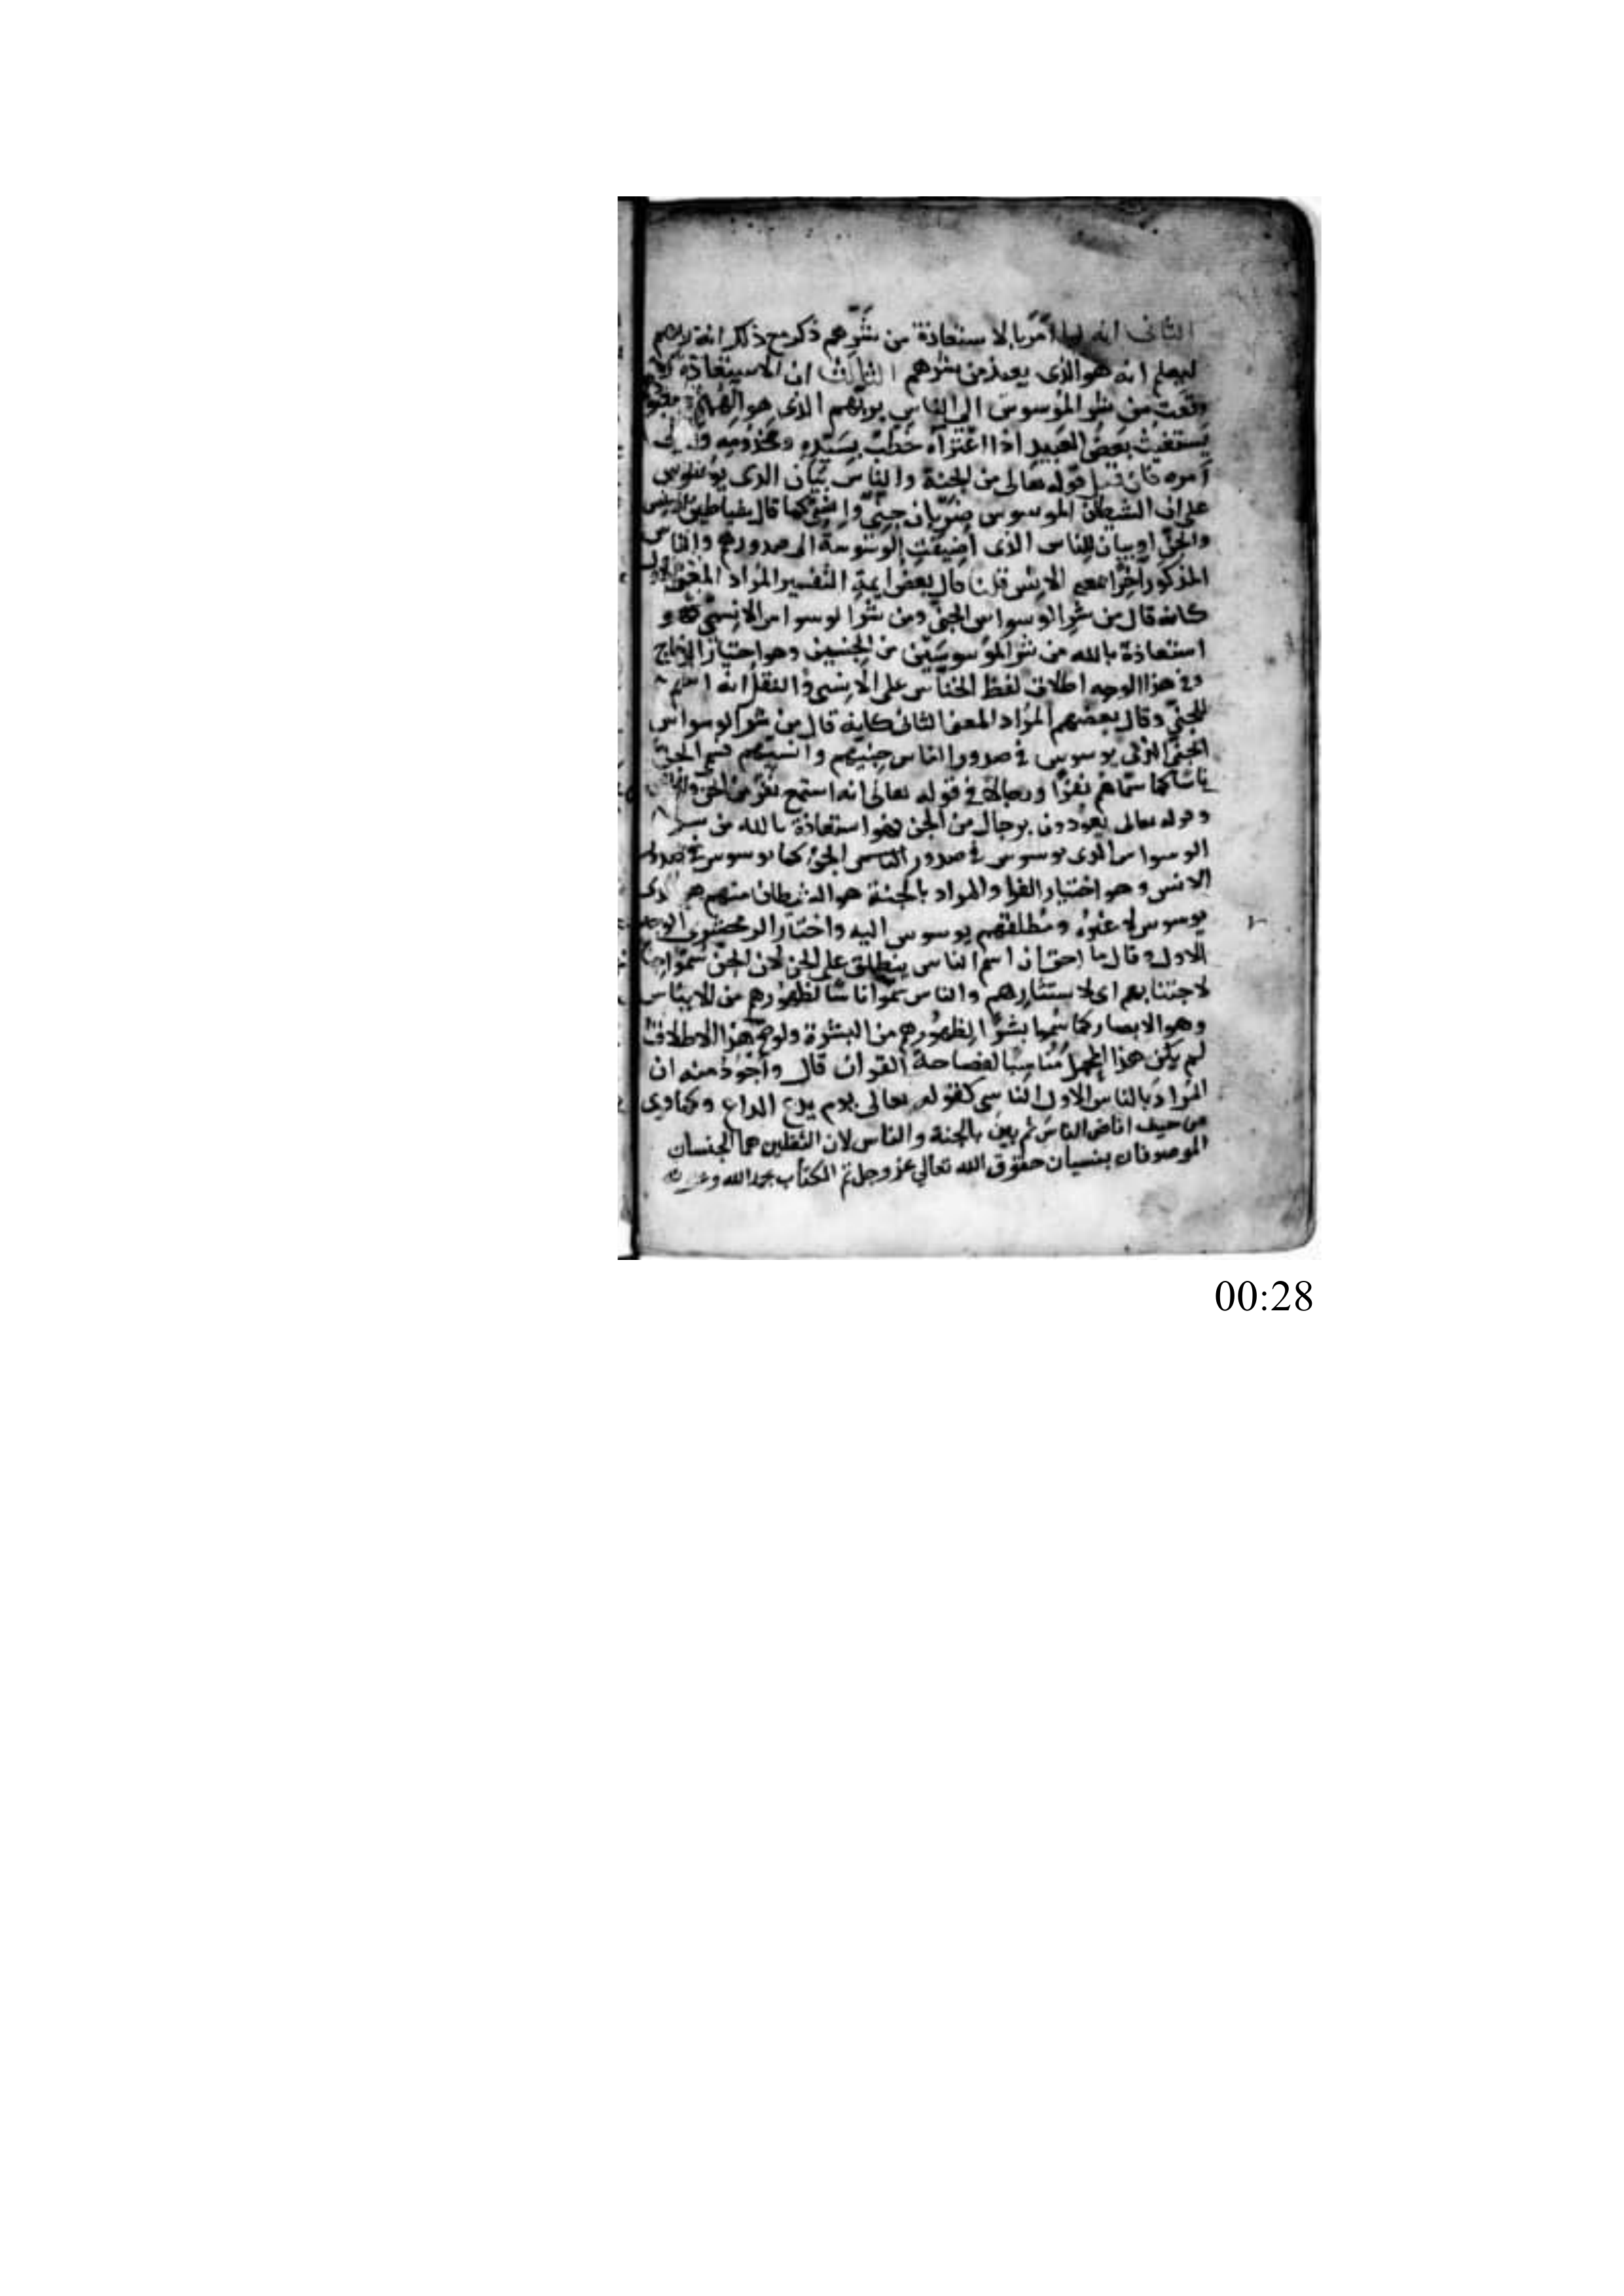 الثانى انه لما امر بالاستعاذة من شرهم ذكر مع ذلك انه ربهم
ليعلم انه هو الذى يعيذ من شرهم الثالث ان الاستعاذة
وقعت من شر الموسوس الى الناس بربهم الذى هو الههم
يستغيث بعض العبيد اذا اعتراه خطب بسيده ومخدومه
امره فان قيل قوله تعالى من الجنة والناس بيان الذى يوسوس
على ان الشيطان الموسوس ضربان جنىّ وانسىّ كما قال شياطين الانس
والجن او بيان للناس الذى اضيفت الوسوسة الى صدورهم والناس
المذكور آخرا بمعنى الانس قلنا قال بعض ايمة التفسير المراد المعنى الاول
كانه قال من شر الوسواس الجنى ومن شر الوسواس الانسى فهو
استعاذة بالله من شر الموسوسين من الجنسين وهو اختيار الزجاج
وفى هذا الوجه اطلاق لفظ الخناس على الانسى والنقل انه اسم
للجنى وقال بعضهم المراد المعنى الثانى كانه قال من شر الوسواس
الجنى الذى يوسوس فى صدور الناس جنيهم وانسيهم فسمى الجن
ناسا كما سماهم نفرا ورجالا فى قوله تعالى انه استمع نفر من الجن
وقوله تعالى يعوذون برجال من الجن فهو استعاذة بالله من شر
الوسواس الذى يوسوس فى صدور الناس الجن كما يوسوس فى صدور
الانس وهو اختيار الفرا والمراد بالجنة هو الشيطان منهم هو الذى
يوسوس لا غيره ومطلقهم يوسوس اليه واختار الزمخشرى الوجه
الاول وقال ما احق ان اسم الناس ينطلق على الجن لان الجن سموا جنا
لاجتنانهم اى لاستتارهم والناس سموا ناسا لظهورهم من الايناس
وهو الابصار كما سموا بشرا لظهورهم من البشرة ولو صح هذا الاطلاق
لم يكن هذا المحمل مناسبا لفصاحة القران قال واجود منه ان
المراد بالناس الاول الناسى كقوله تعالى يوم يدع الداع وكما قرى
من حيث افاض الناس ثم بين بالجنة والناس لان الثقلين هما الجنسان
الموصوفان بنسيان حقوق الله تعالى عز وجل تم الكتاب بحمد الله وعونه
00:28